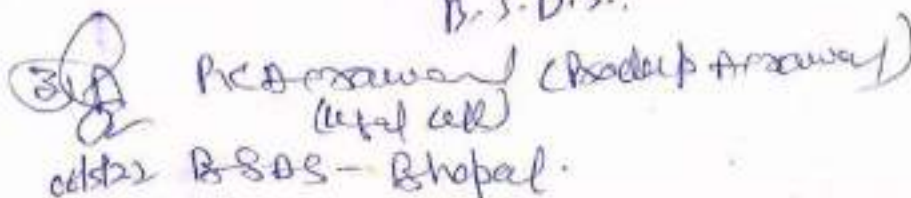 B.S.D.S.
3 PK Agrawal (Pradeep Agrawal)
(Legal Cell)
06/5/22 B-SDS - Bhopal.